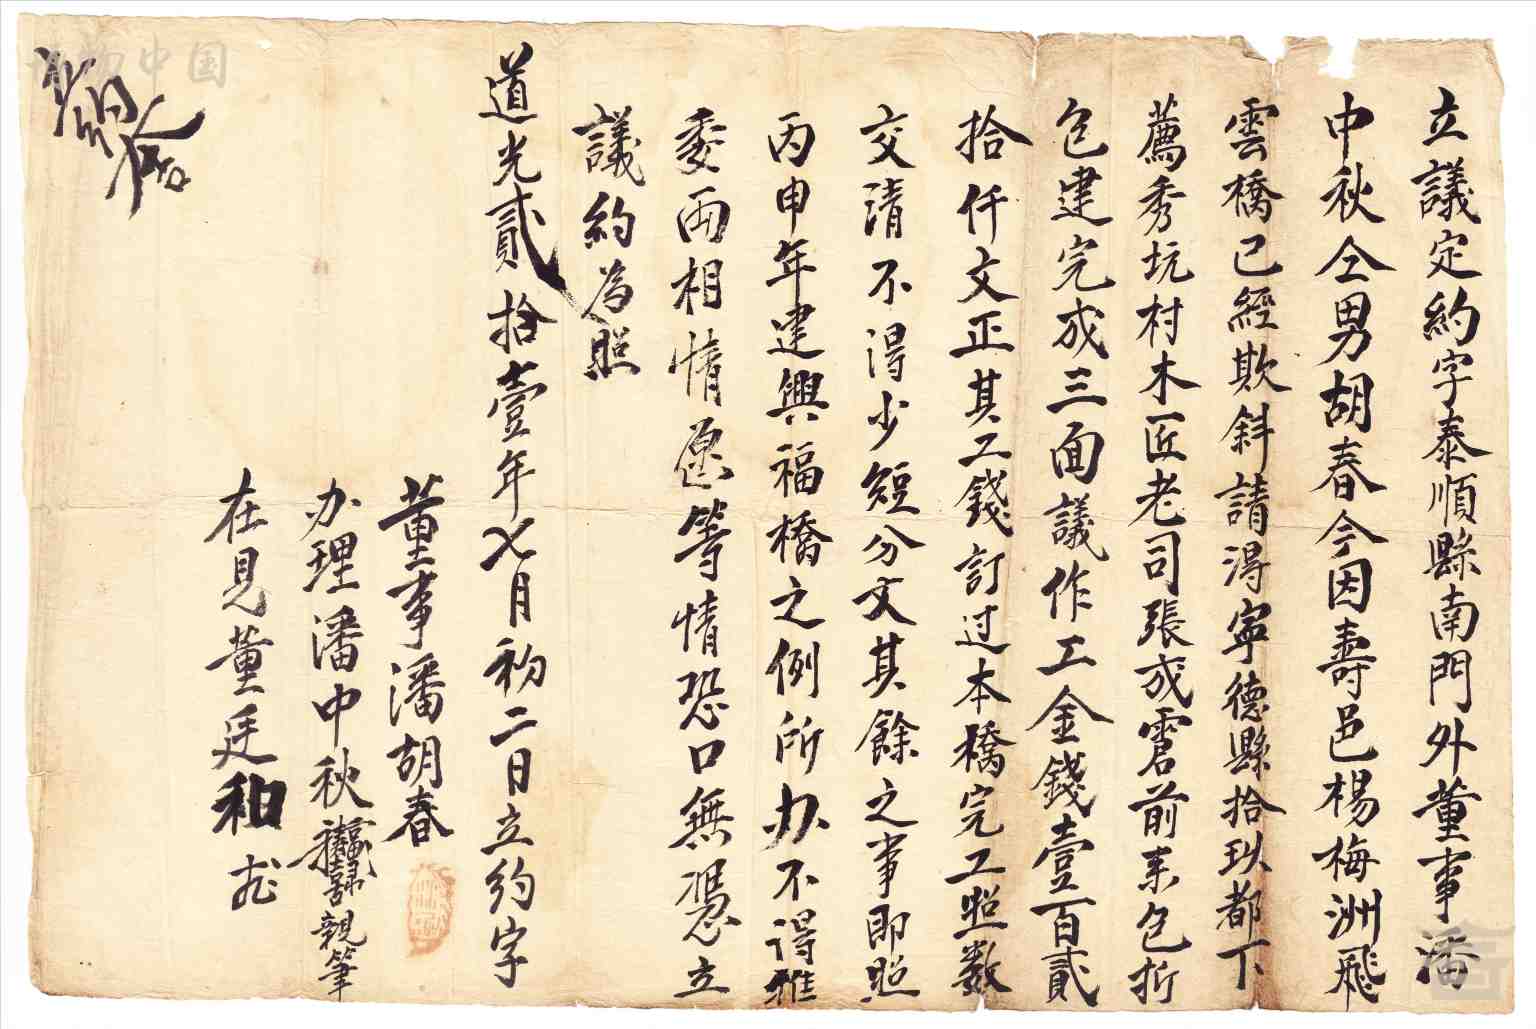 立議定約字泰順縣南門外董事潘
中秋仝男胡春今因壽邑楊梅洲飛
雲橋已經欺斜請淂寧德縣拾玖都下
薦秀坑村木匠老司張成君前来包折
包建完成三面議作工金錢壹百貳
拾仟文正其工錢訂过本橋完工照数
交清不淂少短分文其餘之事即照
丙申年建興福橋之例所办不淂推
委两相情愿等情恐口無憑立
議約為照
道光貳拾壹年七月初二日立約字
董事潘胡春
办理潘中秋 親筆
在見董廷和
中国